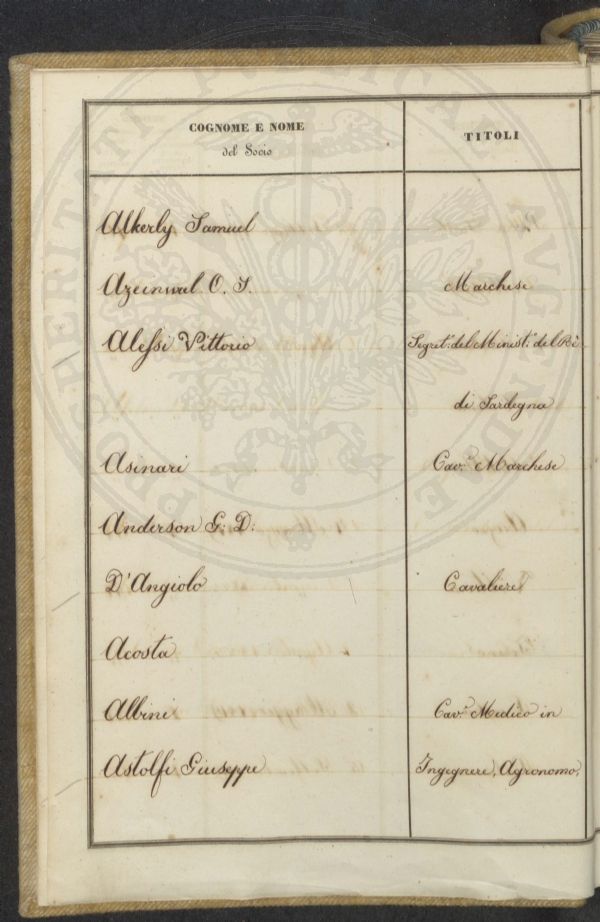 COGNOME E NOME
del Socio
TITOLI
Alkerly Samuel
Azeinwal O. S. Marchese
Alessi Vittorio Segret.º del Minist.º del Rè
di Sardegna
Asinari Cav.e Marchese
Anderson G: D:
D'Angiolo Cavaliere
Acosta
Albini Cav.e Medico in
Astolfi Giuseppe Ingegnere, Agronomo,
PROSPERITATI PUBLICAE AUGENDAE